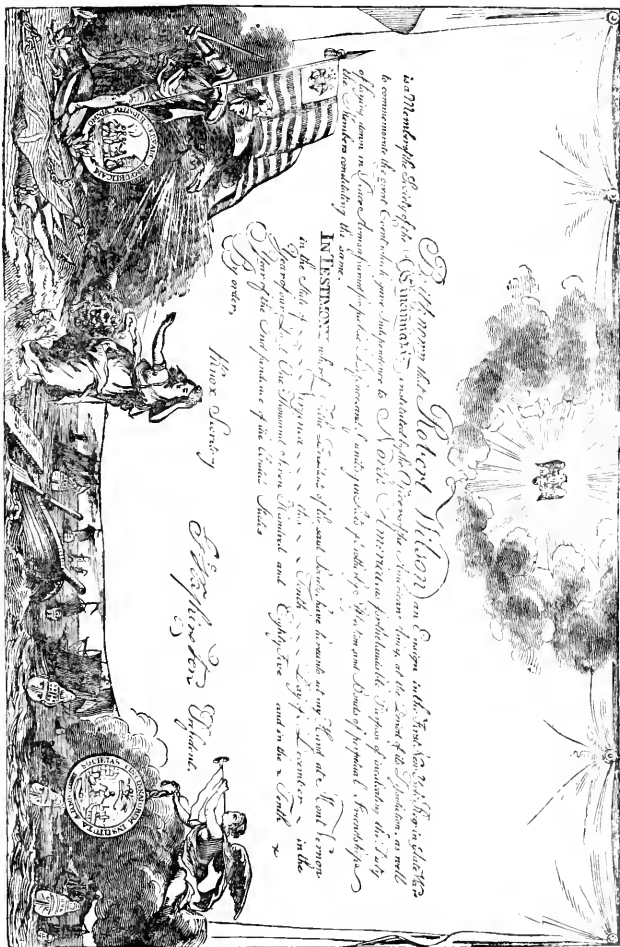 Be it known that Robert Wilson an Ensign in the First New York Reg in the late War
is a Member of the Society of the Cincinnati; instituted by the Officers of the American Army, at the Period of its Dissolution, as well
to commemorate the great Event which gave Independence to North America, as for the laudable Purpose of inculcating the Duty
of laying down in Peace Arms assumed for public Defence, and of uniting in Acts of brotherly Affection and Bonds of perpetual Friendship
the Members constituting the same.
IN TESTIMONY whereof I, the President of the said Society, have hereunto set my Hand at Mount Vernon
in the State of Virginia this Tenth Day of December in the
Year of our Lord One Thousand Seven Hundred and Eighty Five and in the Tenth
Year of the Independence of the United States
By order,
Knox Secretary
G Washington President.
SOCIETAS CINCINNATORUM INSTITUTA